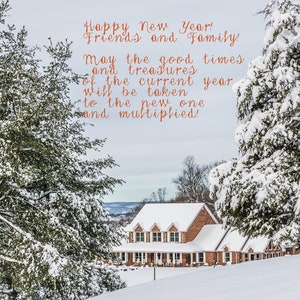 Happy New Year!
Friends and Family!
May the good times
and treasures
of the current year
will be taken
to the new one
and multiplied!